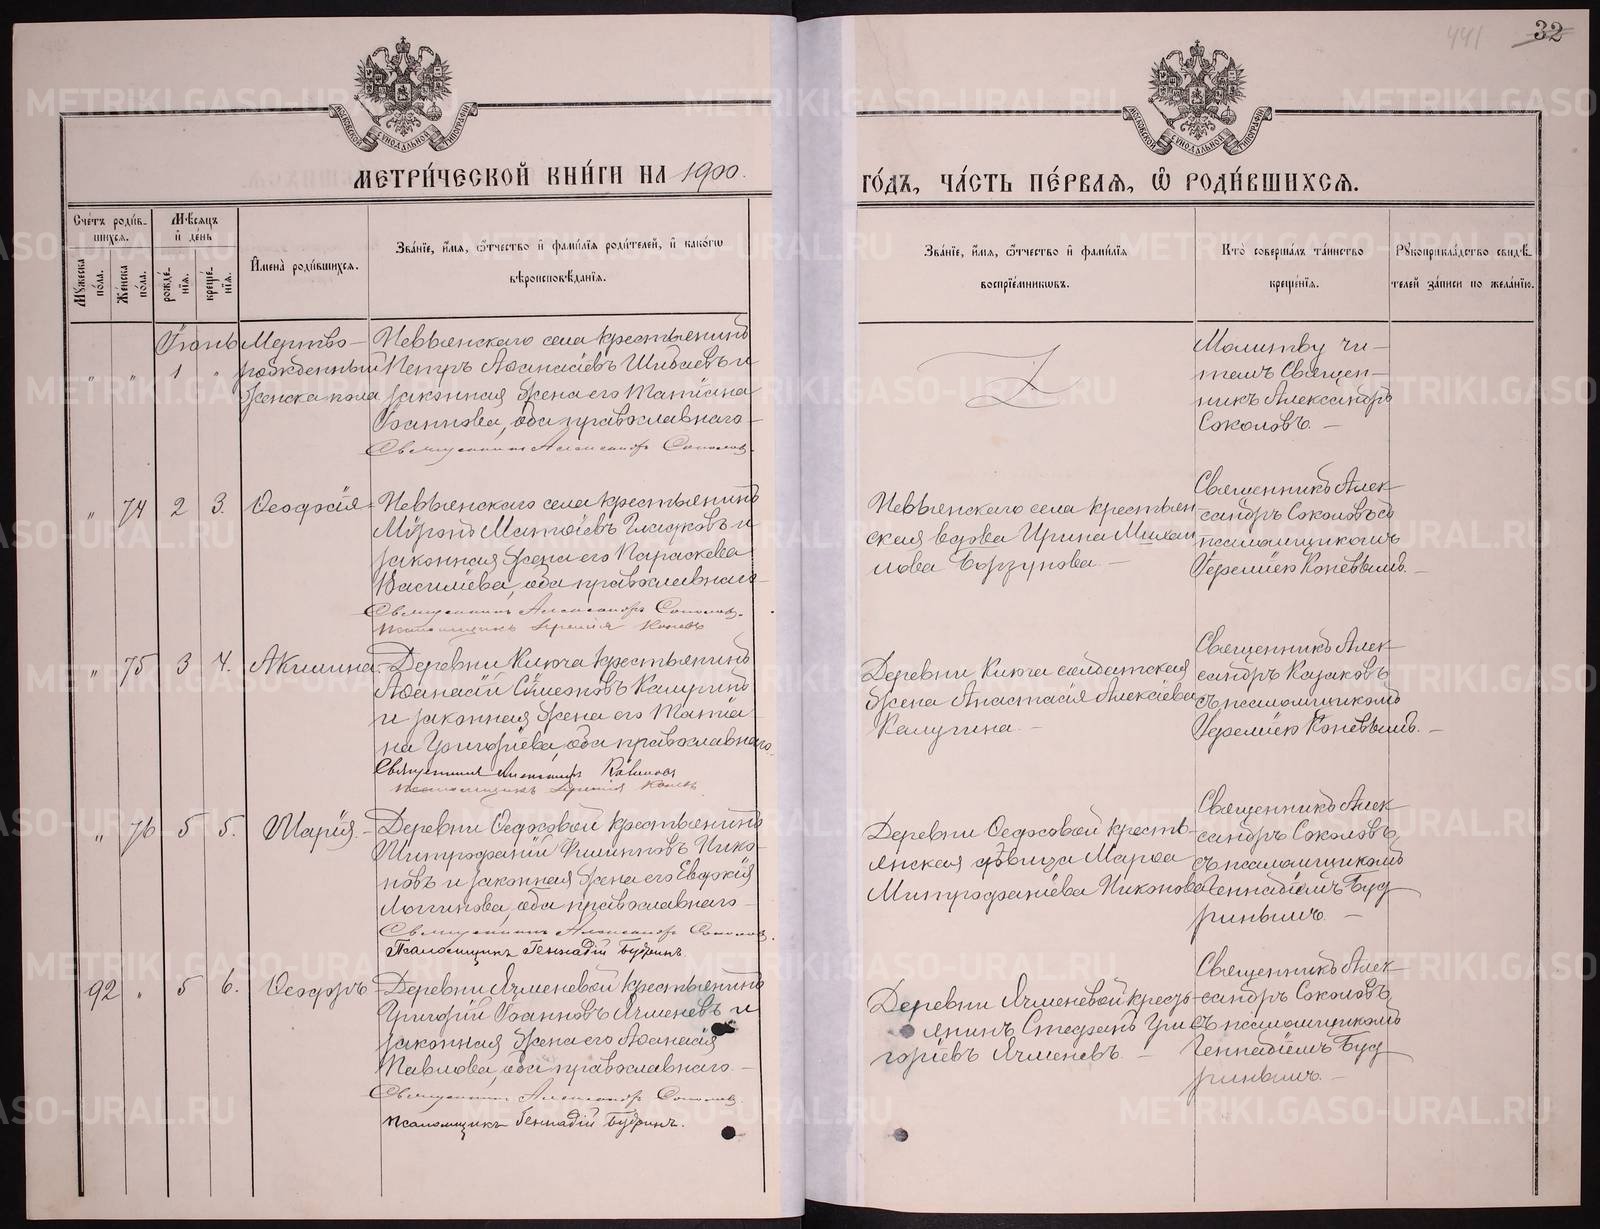 441 32
МЕТРИЧЕСКОЙ КНИГИ НА 1900.
ГОДЪ, ЧАСТЬ ПЕРВАЯ, Ѡ РОДИВШИХСЯ.
Счетъ родившихся.
Мужеска пола.
Женска пола.
Мѣсяцъ и день
рожденія.
крещенія.
Имена родившихся.
Званіе, имя, отчество и фамилія родителей, и какого вѣроисповѣданія.
Званіе, имя, отчество и фамилія воспріемниковъ.
Кто совершалъ таинство крещенія.
Рукоприкладство свидѣтелей записи по желанію.
Іюнь
" " 1 "
Мертво-
рожденный
женска пола
Невьянскаго села крестьянинъ
Петръ Аѳанасіевъ Шибаевъ и
законная жена его Татіана
Іоаннова, оба православнаго
Священникъ Александръ Соколовъ.
Молитву чи-
талъ Священ-
никъ Александръ
Соколовъ. —
" 74 2 3. Ѳеофзія
Невьянскаго села крестьянинъ
Миронъ Матѳіевъ Гладковъ и
законная жена его Параскева
Василіева, оба православнаго
Священникъ Александръ Соколовъ.
Псаломщикъ Іеремія Коневъ
Невьянскаго села крестьян
ская вдова Ирина Михаи
лова Борзунова. —
Священникъ Алек
сандръ Соколовъ съ
псаломщикомъ
Іереміею Коневымъ. —
" 75 3 4. Акилина
Деревни Ключа крестьянинъ
Аѳанасій Симеоновъ Калугинъ
и законная жена его Татіа
на Григоріева, оба православнаго
Священникъ Александръ Казаковъ
Псаломщикъ Іеремія Коневъ.
Деревни Ключа солдатская
жена Анастасія Алексіева
Калугина. —
Священникъ Алек
сандръ Казаковъ
съ псаломщикомъ
Іереміею Коневымъ. —
" 76 5 5. Марія. —
Деревни Ѳедосовой крестьянинъ
Митрофаній Филипповъ Нико-
новъ и законная жена его Евдокія
Логгинова, оба православнаго —
Священникъ Александръ Соколовъ.
Псаломщикъ Геннадій Будринъ.
Деревни Ѳедосовой кресть-
янская дѣвица Марѳа
Митрофаніева Никонова
Священникъ Алек
сандръ Соколовъ
съ псаломщикомъ
Геннадіемъ Буд
ринымъ. —
92 " 5 6. Ѳеодоръ
Деревни Ячменевой крестьянинъ
Григорій Іоанновъ Ячменевъ и
законная жена его Аѳанасія
Павлова, оба православнаго. —
Священникъ Александръ Соколовъ.
Псаломщикъ Геннадій Будринъ.
Деревни Ячменевой кресть-
янинъ Стефанъ Гри
горіевъ Ячменевъ. —
Священникъ Алек
сандръ Соколовъ
съ псаломщикомъ
Геннадіемъ Буд
ринымъ. —
METRIKI.GASO-URAL.RU